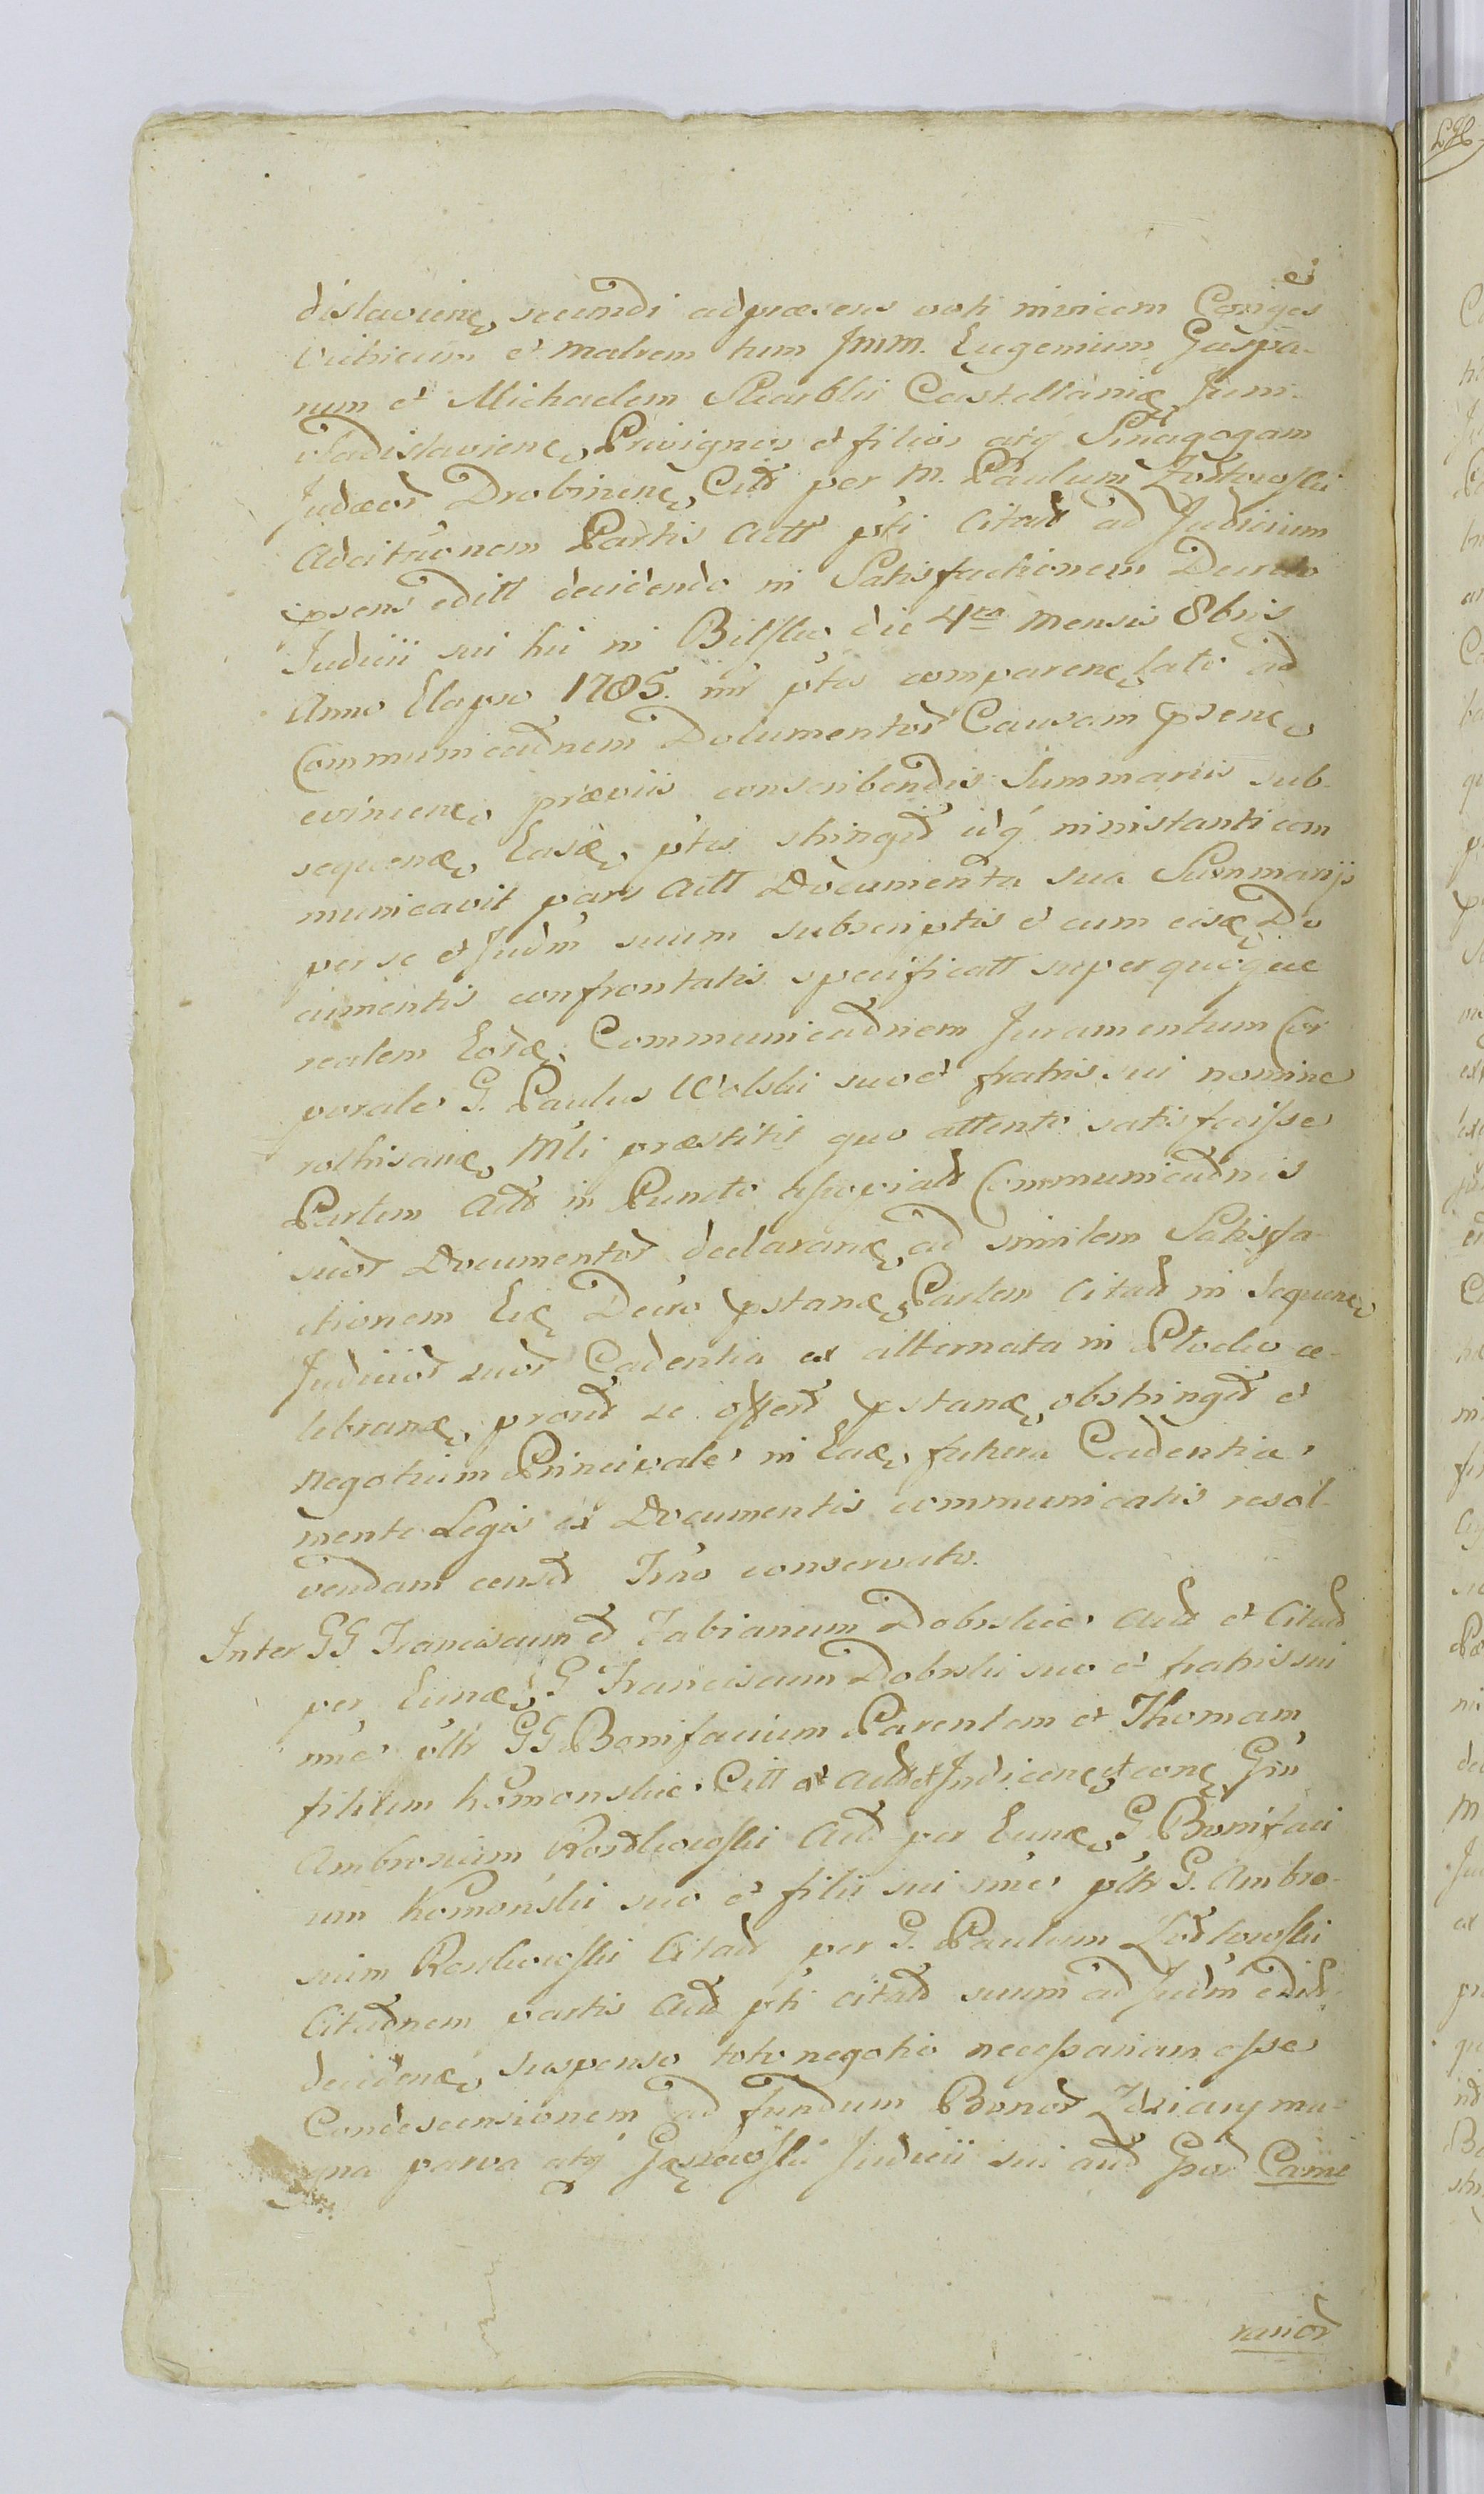 dislaviene secundi adpræsens voti invicem Coniges
Vitricum et Matrem tum Jmm. Eugenium Gaspa-
rum et Michaelem Skarbki Castellaniæ Juni-
vladislaviene, Privignos et filios atq Sinagogam
Judæor Drobinene, Citt per M. Paulum
Adcitaonem Partis Actt pti Citatt ad Judicium
psens editt decidendo in Satisfactionem Decreto
Judicii sui hic in Bilsko, die 4ta Mensis 8bris
Anno Elapso 1785. inr ptes comparene, lato ad
Communicaonem Documentor Causam psene
evincene, præviis conscribendis Summariis sub-
sequenæ, Easæ, ptes stringit idq ninistanti com
municavit pars Actt Documenta sua Summarijs
per se et Judm suum subscriptis et cum eisæ Do
cumentis confrontatis specificatt super quoque
realem Eoræ, Communicaonem Juramentum Cor
porale G. Paulus Wolski suo et fratris sui nomine
rothisanæ, Mli præstitit quo attento satisfecisse
Partem Actt in Puncto Communicaonis
suor Documentor declaranæ, ad similem Satisfa-
ctionem Eiæ Decro pstanæ, Partem Citatt in Sequene
Judicior suor Cadentia ex alternata in Plocko ce-
lebranæ, prout se offert pstanæ, obstringit et
negotium Principale in Eaæ, futura Cadentia
mente Legis ex Documentis communicatis resol-
vendam censet Trno conservato.
Inter GG Franciscum et Fabianum Dobrskie Actt et Citatt
per Eunæ, G Franciscum Dobrski suo et fratris sui
nne pltr GG Bonifacium Parentem et Thomam
filium Komonskie Citt et Actt et Indicene, et conæ Gnu
Ambrosium Actt per Eunæ, G Bonifaci
um Komonski suo et filii sui nne pltr G. Ambro-
sium Citatt per G. Paulum
Citaonem partis Actt pti citatt suum ad Judm editt
decidenæ, suspenso toto negotio necessariam esse
Condescensionem ad fundum Bonor Zdziary ma-
gna parva atq Judicii sui Came
rarior